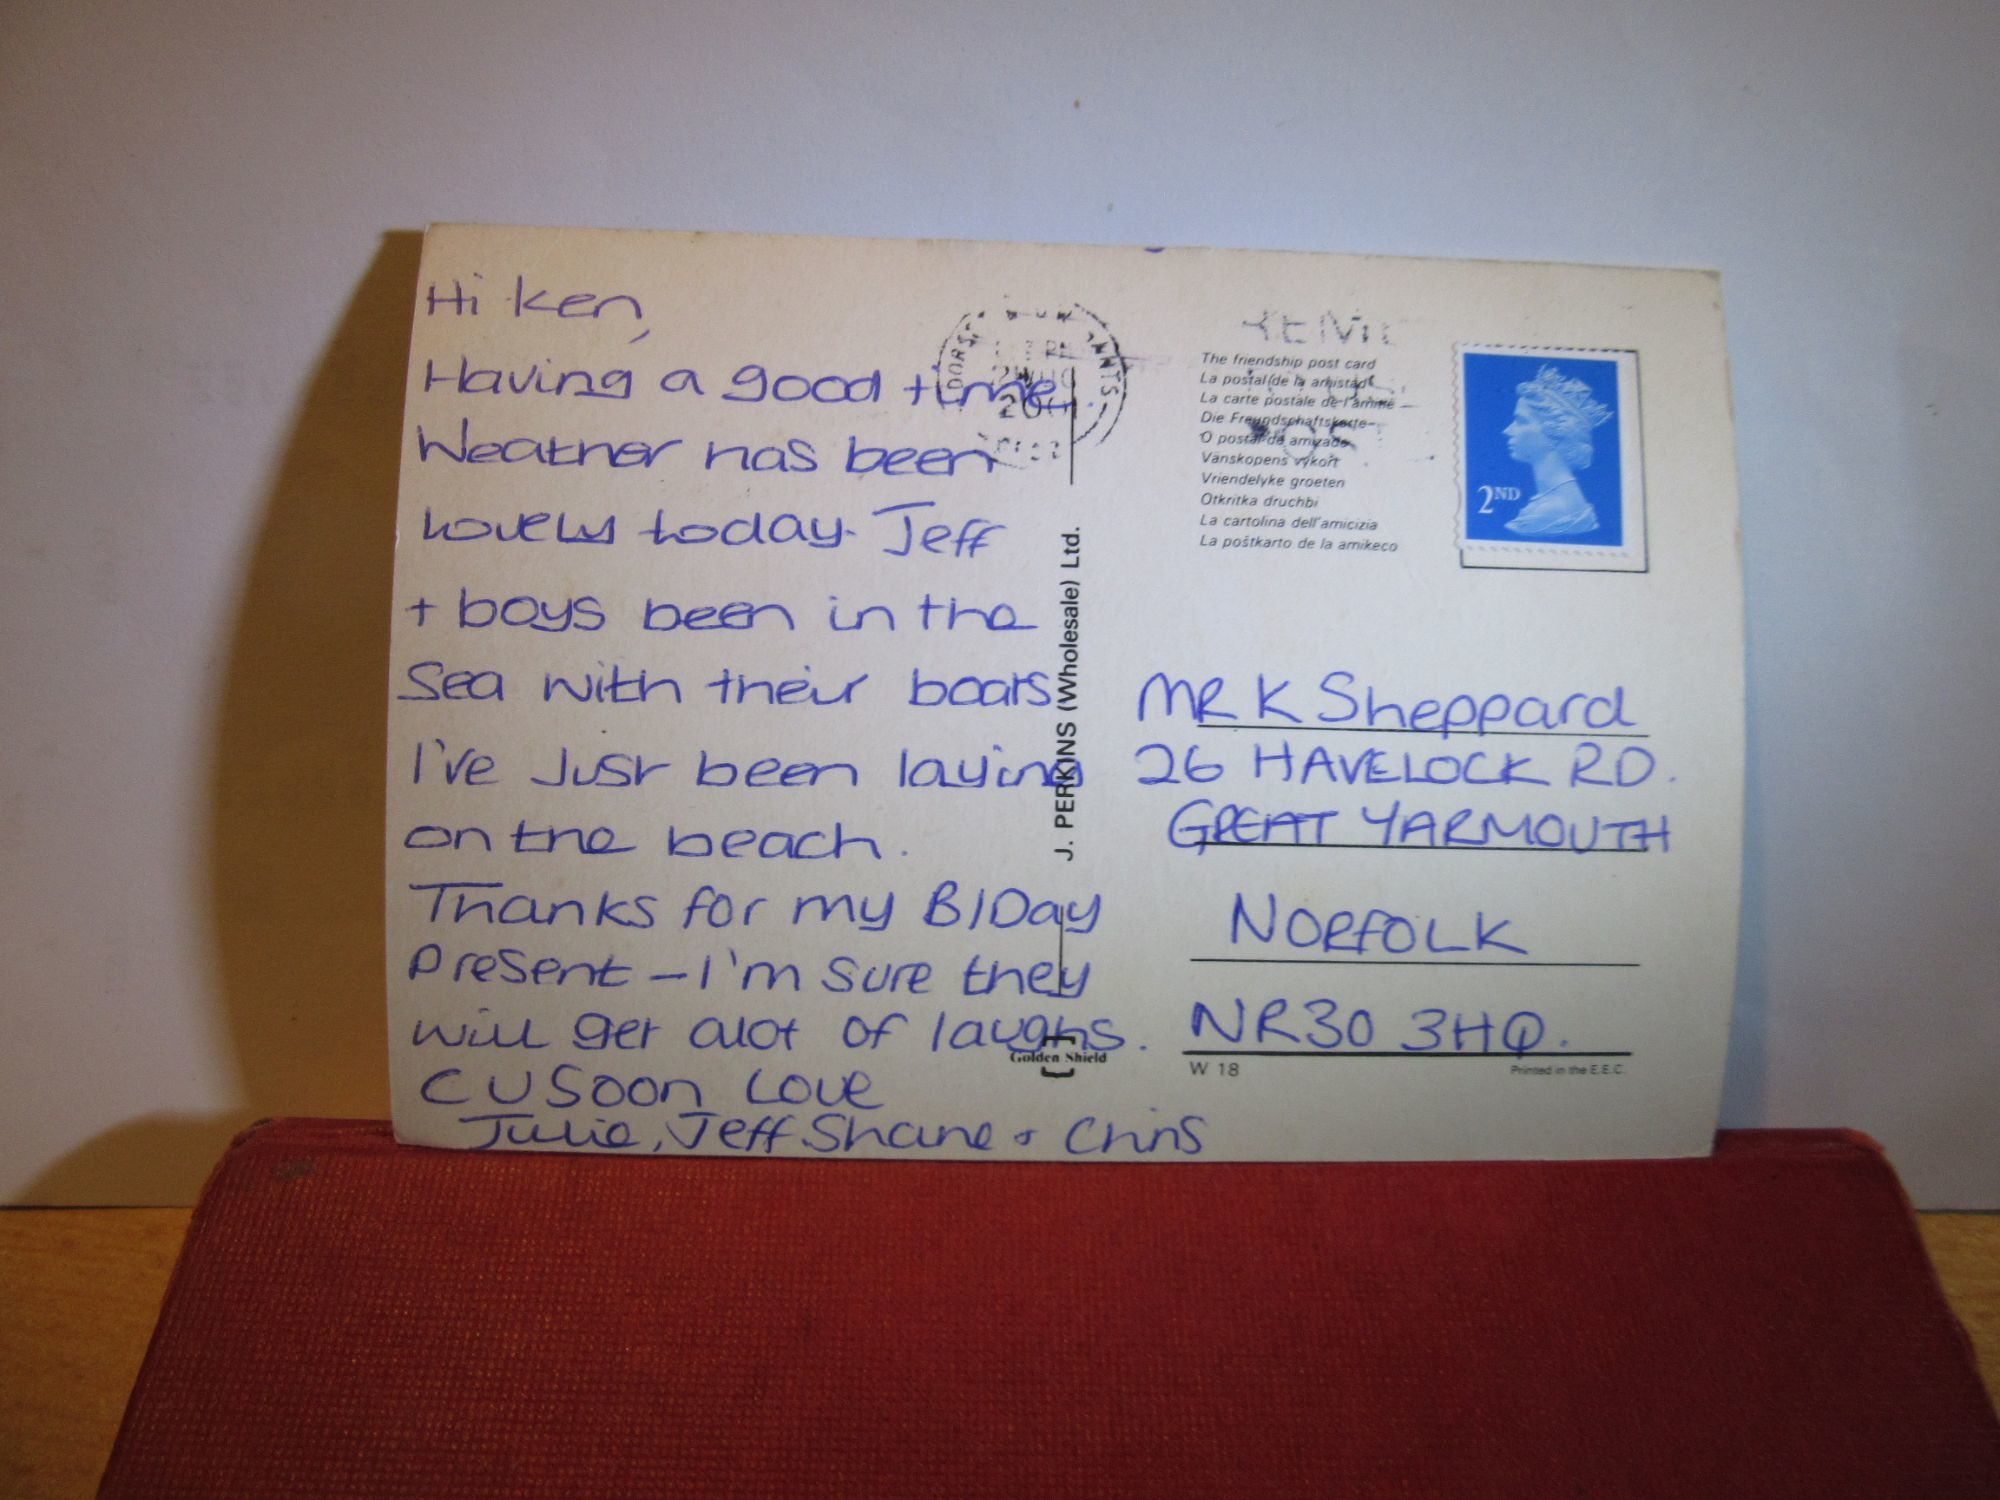 Hi Ken,
Having a good time.
Weather has been
Lovely today. Jeff
+ boys been in the
Sea with their boats
I've Just been laying
on the beach.
Thanks for my B/Day
Present - I'm sure they
will get alot of laughs.
C U Soon Love
Julie, Jeff, Shane + Chris
DORSET HANTS
J. PERKINS (Wholesale) Ltd.
Golden Shield
The friendship post card
La postal de la amistad
La carte postale de l'amitié
Die Freundschaftskarte
O postal de amizade
Vänskopens vykort
Vriendelyke groeten
Otkritka druchbi
La cartolina dell'amicizia
La poŝtkarto de la amikeco
2ND
MR K Sheppard
26 HAVELOCK RD.
GREAT YARMOUTH
NORFOLK
NR30 3HQ.
W 18
Printed in the E.E.C.